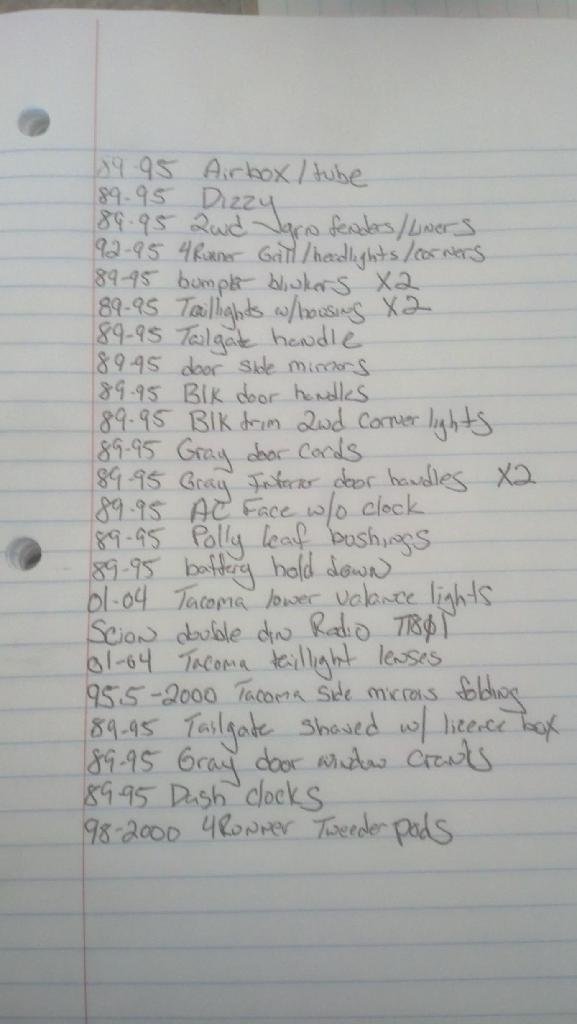 89-95 Airbox/tube
89-95 Dizzy
89-95 2wd grn fenders/Liners
92-95 4Runner Grill/headlights/corners
89-95 bumper blinkers X2
89-95 Taillights w/housing X2
89-95 Tailgate handle
89-95 door side mirrors
89-95 Blk door handles
89-95 Blk trim 2wd corner lights
89-95 Gray door cards
89-95 Gray Interior door handles X2
89-95 AC Face w/o clock
89-95 Polly leaf bushings
89-95 battery hold down
01-04 Tacoma lower valance lights
Scion double din Radio T1801
01-04 Tacoma taillight lenses
95.5-2000 Tacoma side mirrors folding
89-95 Tailgate shaved w/ licence box
89-95 Gray door window cranks
89-95 Dash clocks
98-2000 4Runner Tweeder pods